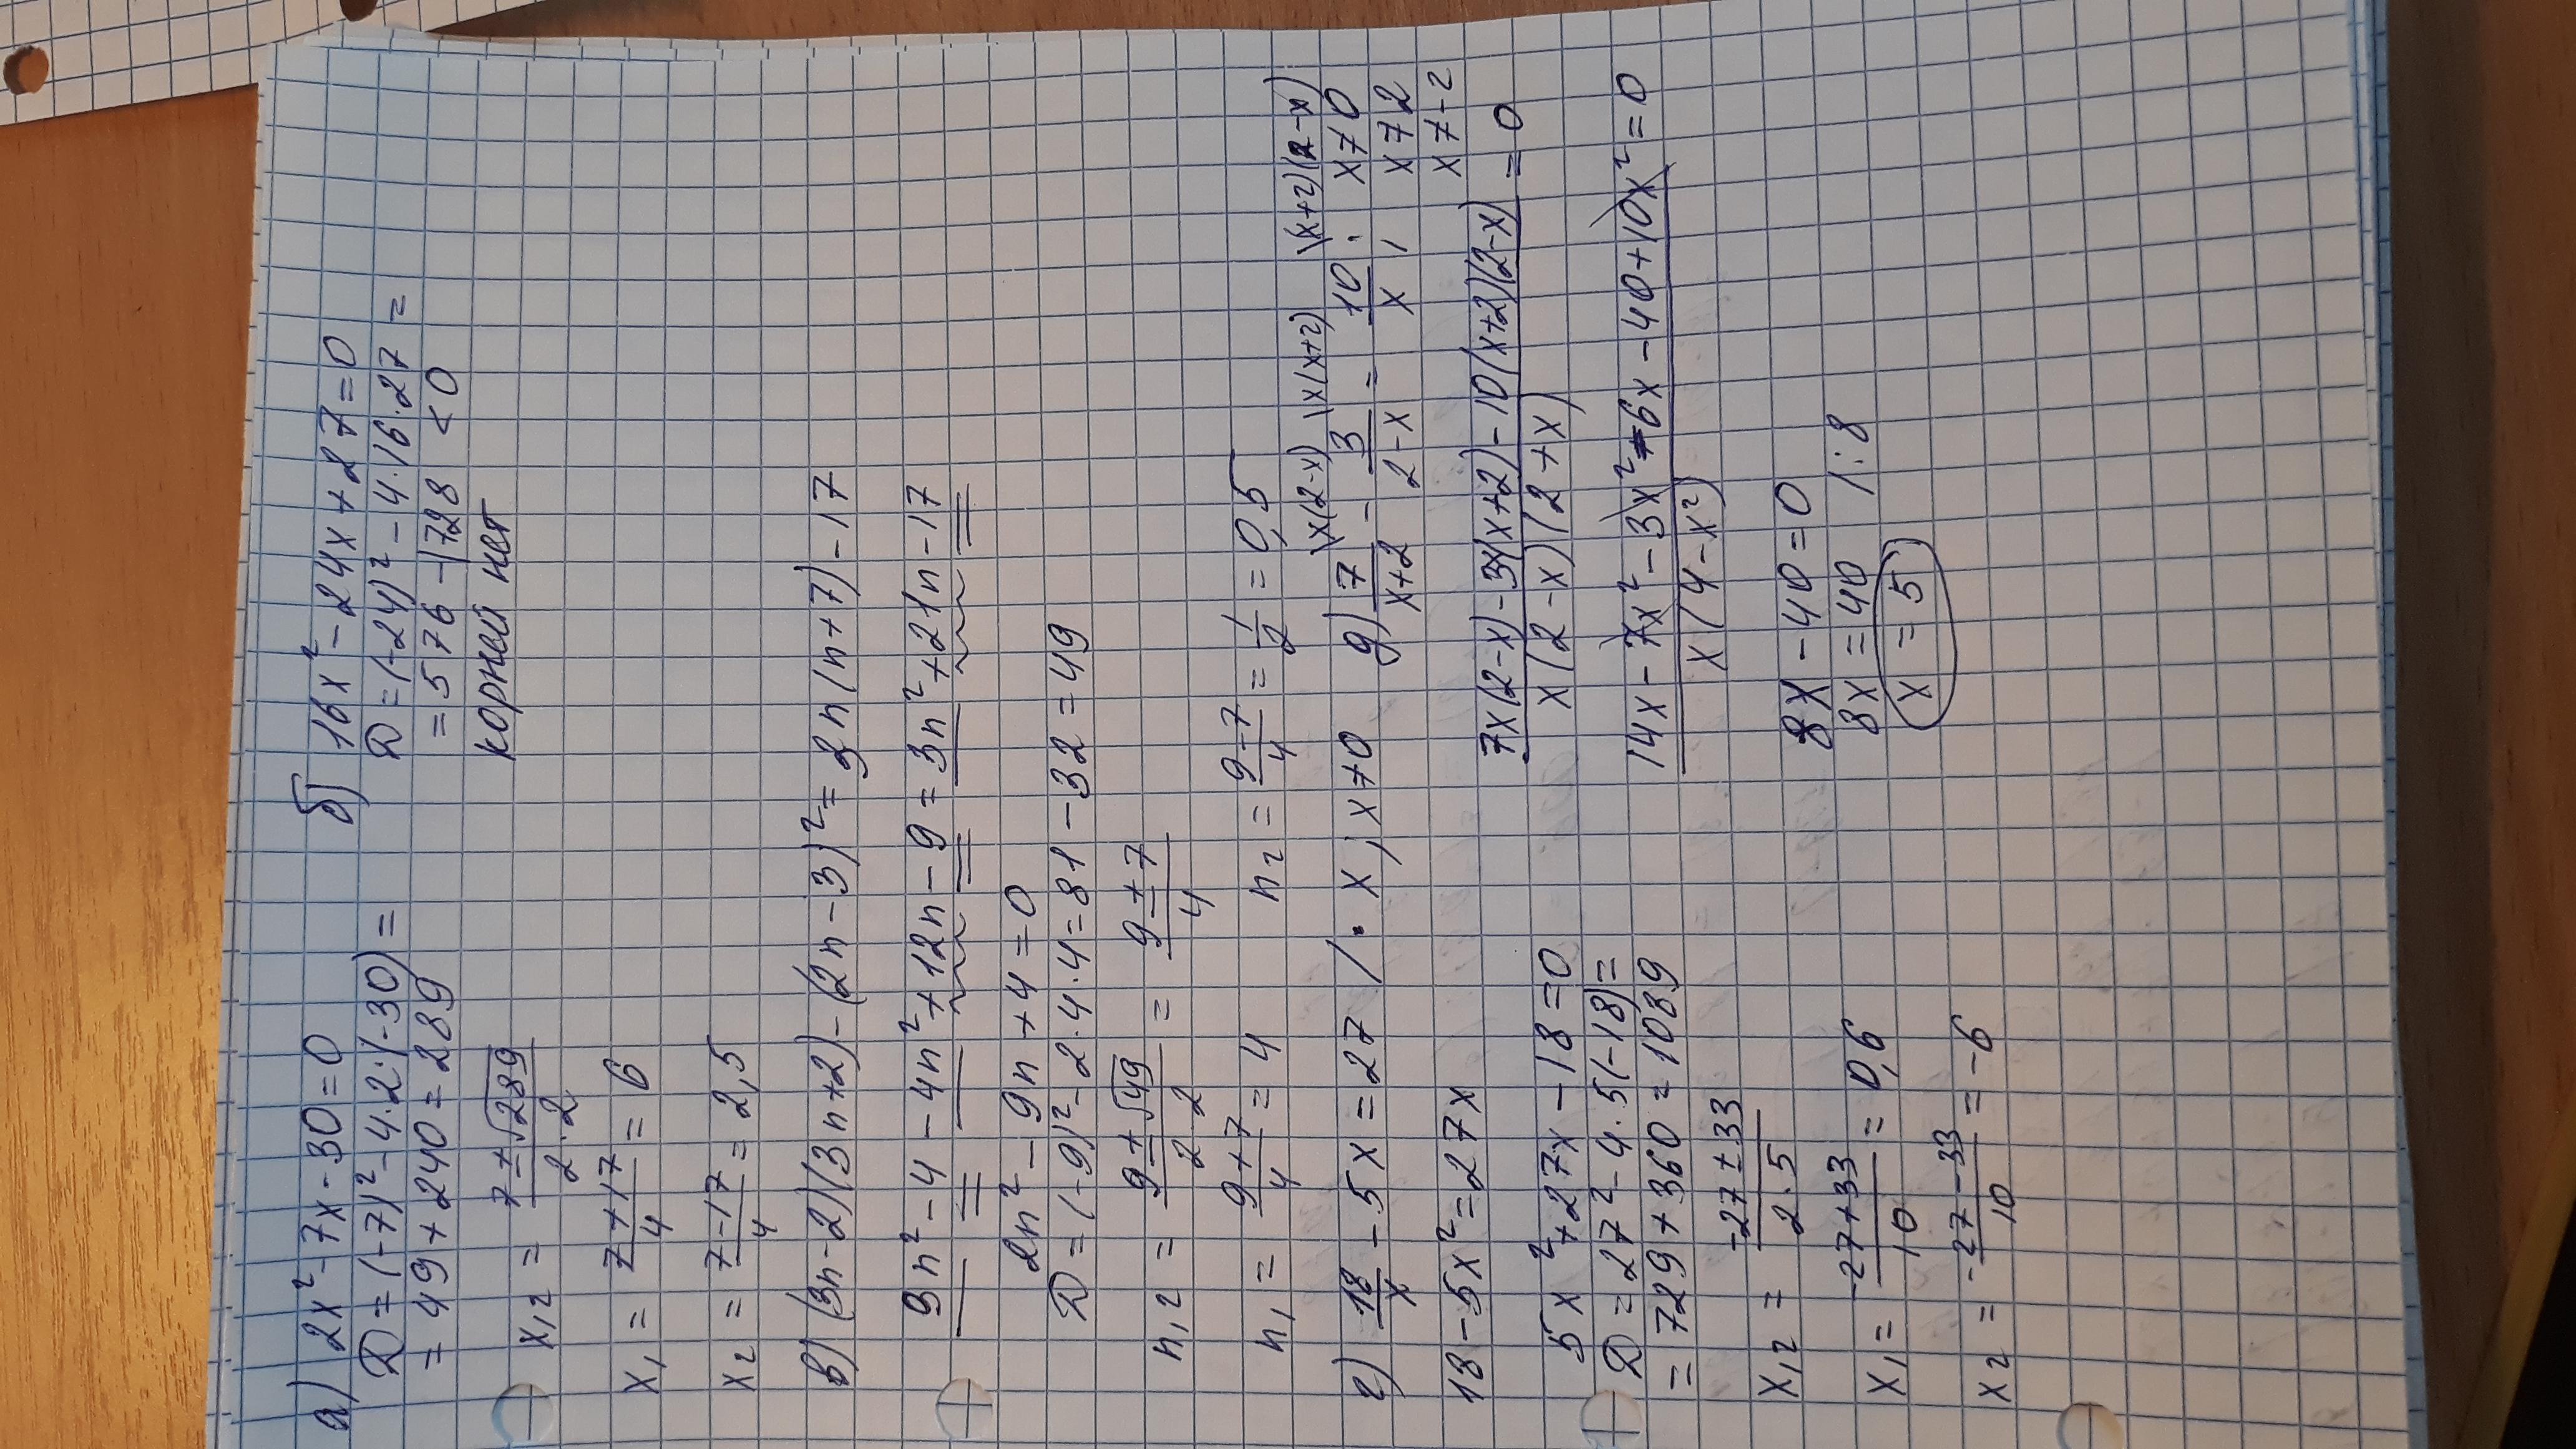 а) 2x² - 7x - 30 = 0
D = (-7)² - 4·2·(-30) =
= 49 + 240 = 289
x₁₂ = (7 ± √289)/(2·2)
x₁ = (7+17)/4 = 6
x₂ = (7-17)/4 = 2,5
б) 16x² - 24x + 27 = 0
D = (-24)² - 4·16·27 =
= 576 - 1728 < 0
корней нет
в) (3n-2)(3n+2) - (2n-3)² = 3n(n+7) - 17
9n² - 4 - 4n² + 12n - 9 = 3n² + 21n - 17
2n² - 9n + 4 = 0
D = (-9)² - 2·4·4 = 81 - 32 = 49
n₁₂ = (9 ± √49)/(2·2) = (9 ± 7)/4
n₁ = (9+7)/4 = 4
n₂ = (9-7)/4 = 1/2 = 0,5
г) 18/x - 5x = 27 /· x, x≠0
18 - 5x² = 27x
5x² + 27x - 18 = 0
D = 27² - 4·5(-18) =
= 729 + 360 = 1089
x₁₂ = (-27 ± 33)/(2·5)
x₁ = (-27+33)/10 = 0,6
x₂ = (-27-33)/10 = -6
\x(2-x) \x(x+2) \(x+2)(2-x)
д) 7/(x+2) - 3/(2-x) = 10/x ; x≠0
x≠2
x≠-2
(7x(2-x) - 3x(x+2) - 10(x+2)(2-x))/(x(2-x)(2+x)) = 0
(14x - 7x² - 3x² - 6x - 40 + 10x²)/(x(4-x²)) = 0
8x - 40 = 0
8x = 40 /:8
x = 5